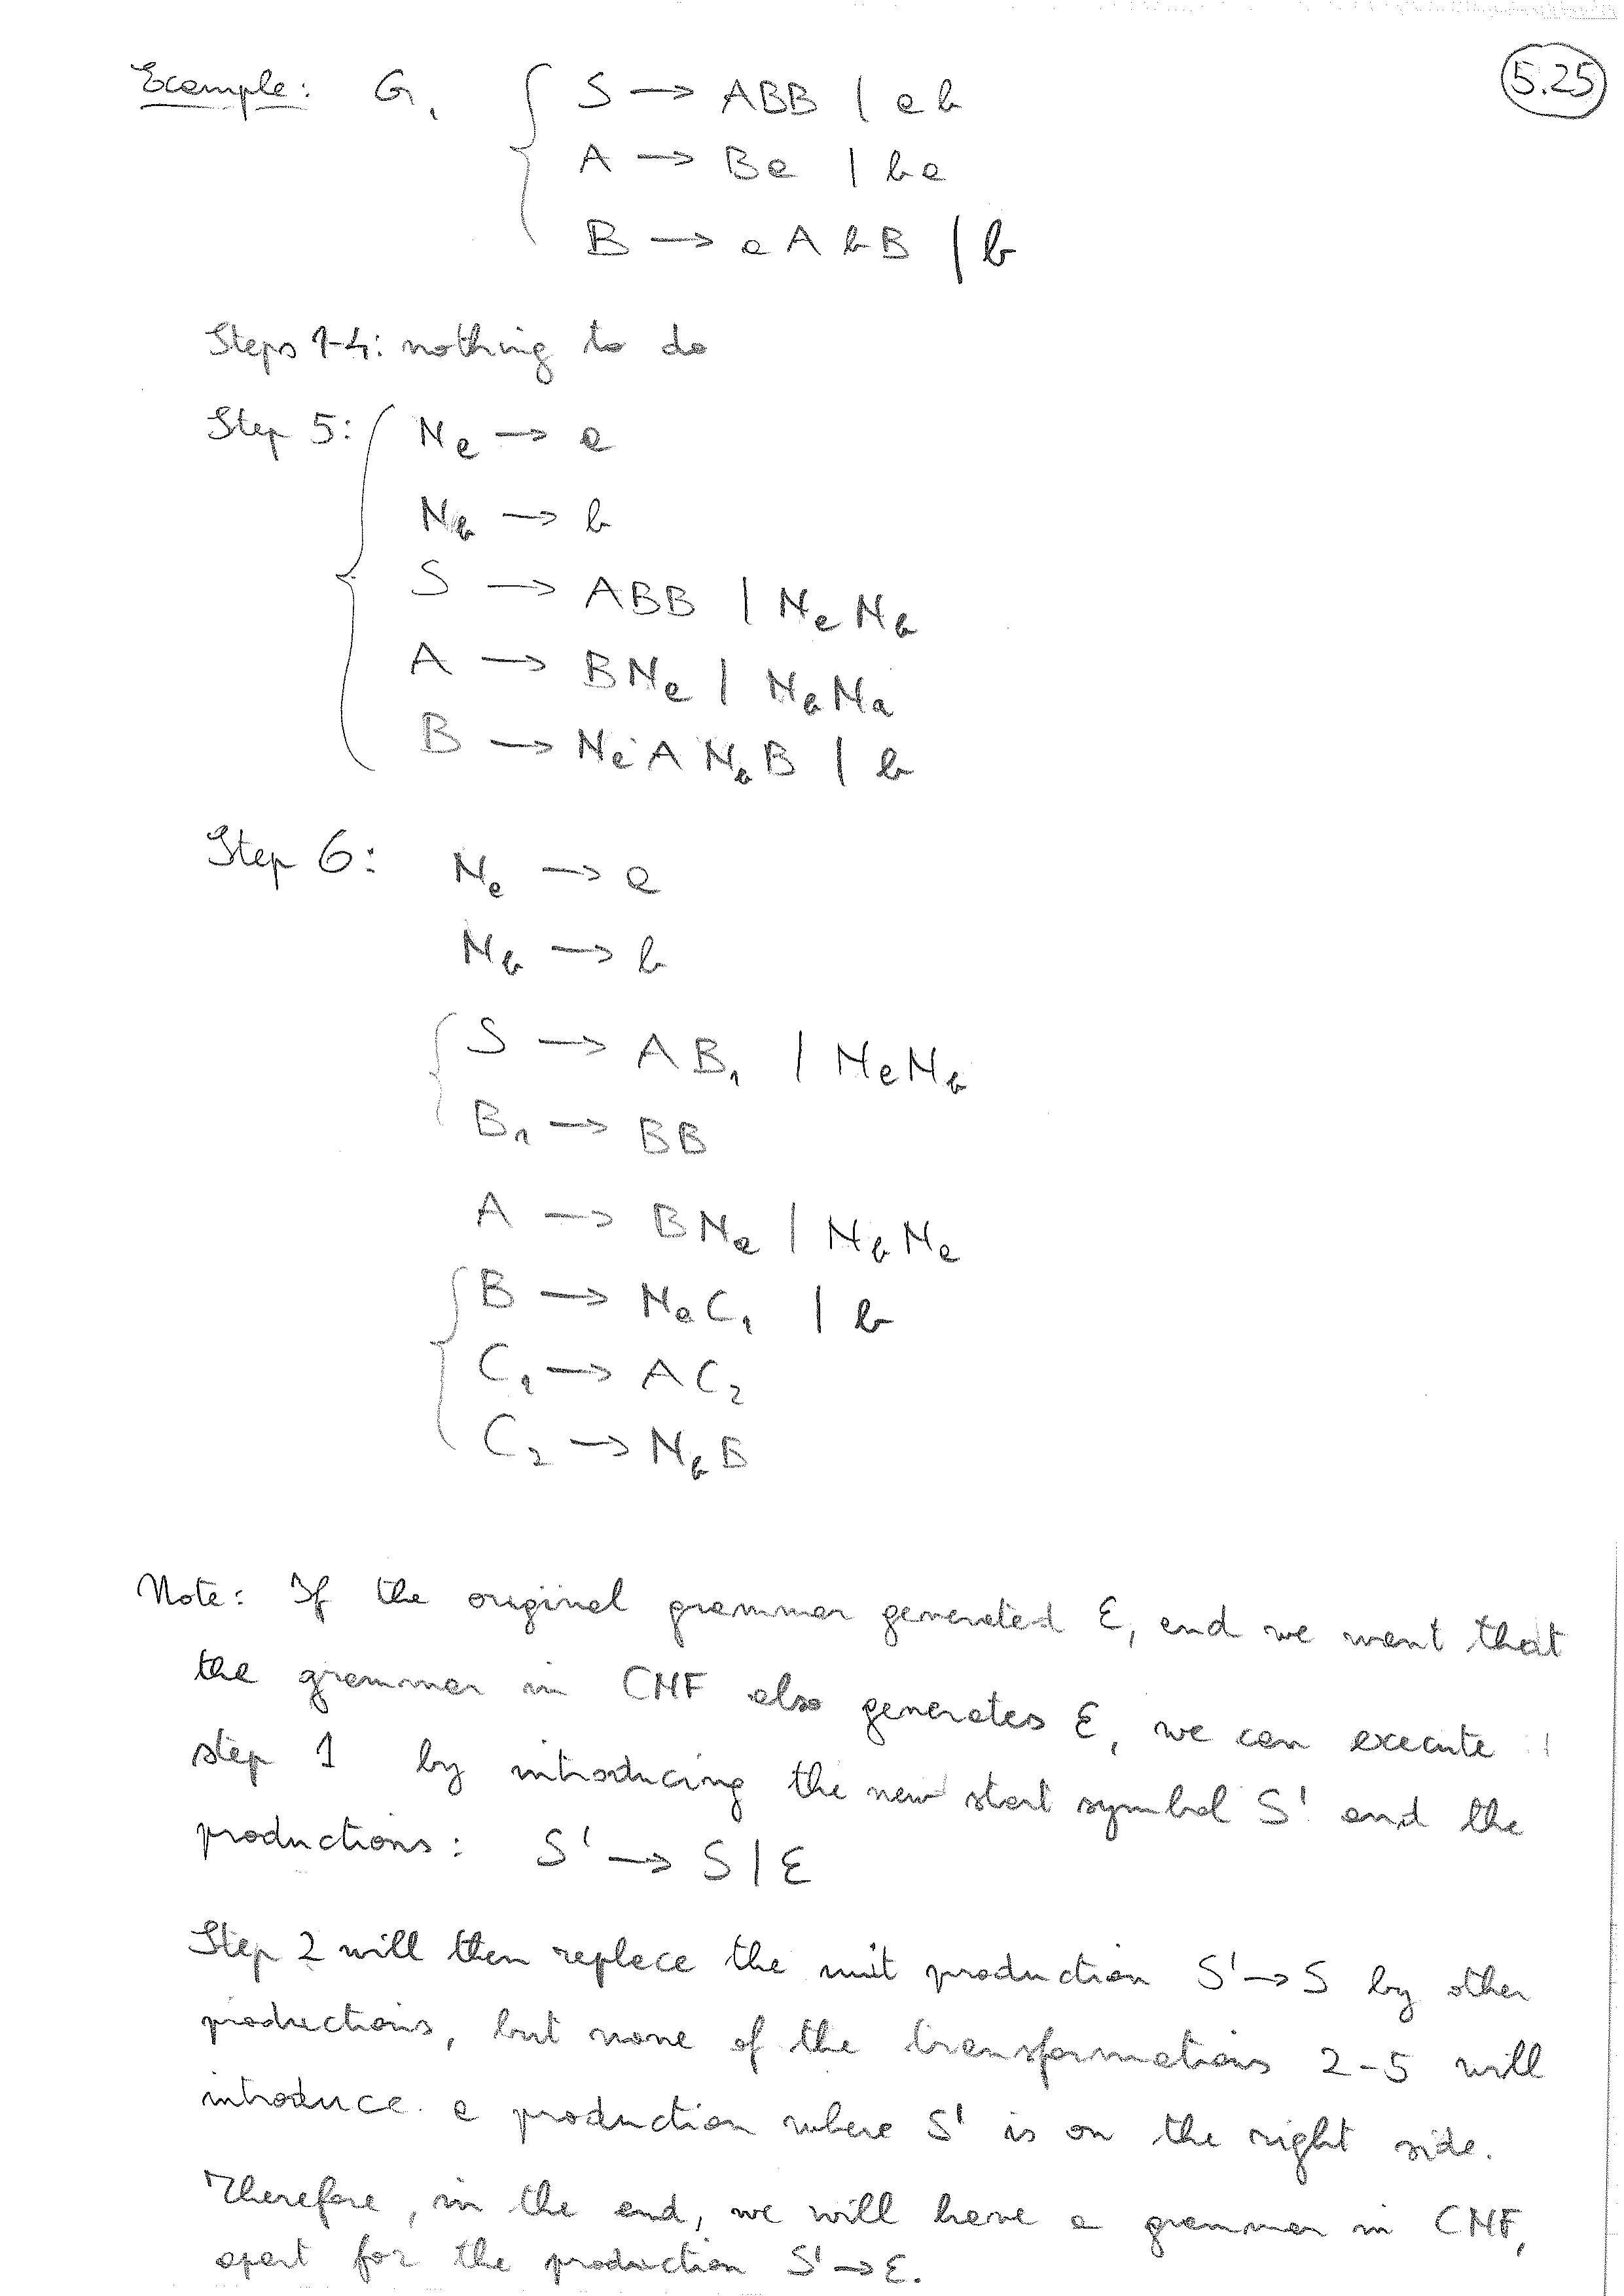 5.25
Example: G₁ { S → ABB | ab
A → Ba | ba
B → aAbB | b
Steps 1-4: nothing to do
Step 5: { Nₐ → a
N_b → b
S → ABB | Nₐ N_b
A → BNₐ | N_b Nₐ
B → Nₐ A N_b B | b
Step 6: Nₐ → a
N_b → b
{ S → AB₁ | Nₐ N_b
B₁ → BB
A → BNₐ | N_b Nₐ
{ B → Nₐ C₁ | b
C₁ → AC₂
C₂ → N_b B
Note: If the original grammar generated ε, and we want that
the grammar in CNF also generates ε, we can execute
step 1 by introducing the new start symbol S' and the
productions: S' → S | ε
Step 2 will then replace the unit production S' → S by other
productions, but none of the transformations 2-5 will
introduce a production where S' is on the right side.
Therefore, in the end, we will have a grammar in CNF,
apart for the production S' → ε.